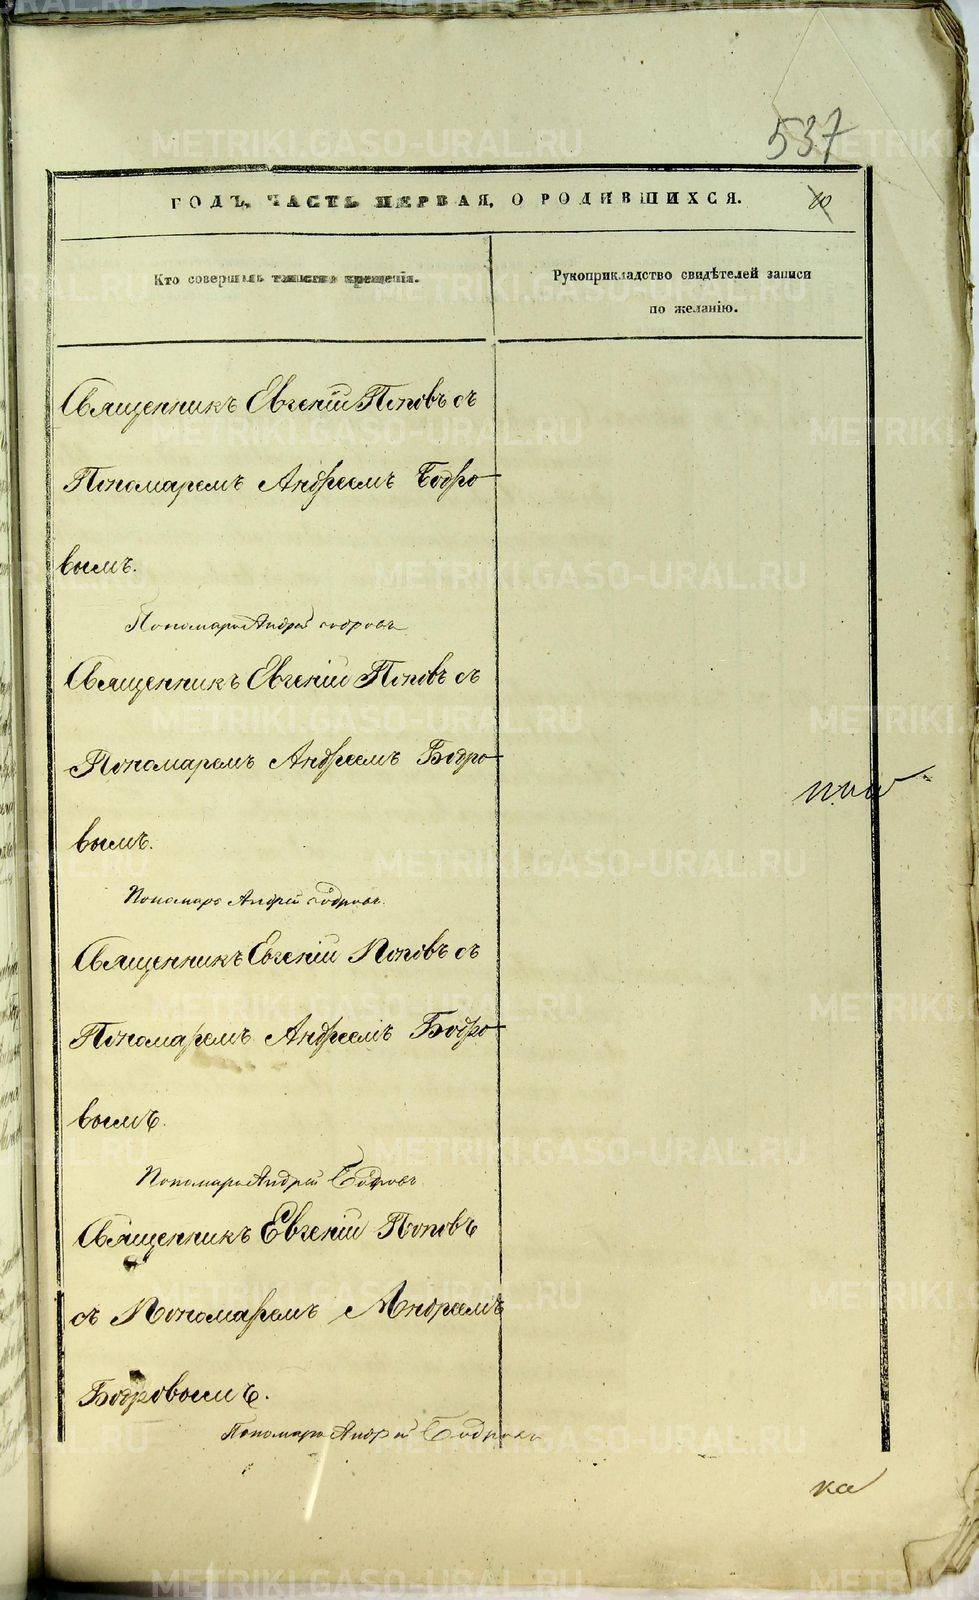 537
ГОДЪ, ЧАСТЬ ПЕРВАЯ, О РОДИВШИХСЯ.
Кто совершалъ таинство крещенія.
Рукоприкладство свидѣтелей записи
по желанію.
Священникъ Евгеній Поповъ съ
Пономаремъ Андреемъ Бодро
вымъ.
Пономарь Андрей Бодровъ
Священникъ Евгеній Поповъ съ
Пономаремъ Андреемъ Бодро
вымъ.
Пономарь Андрей Бодровъ
Священникъ Евгеній Поповъ съ
Пономаремъ Андреемъ Бодро
вымъ.
Пономарь Андрей Бодровъ
Священникъ Евгеній Поповъ
съ Пономаремъ Андреемъ
Бодровымъ.
Пономарь Андрей Бодровъ
ка
METRIKI.GASO-URAL.RU